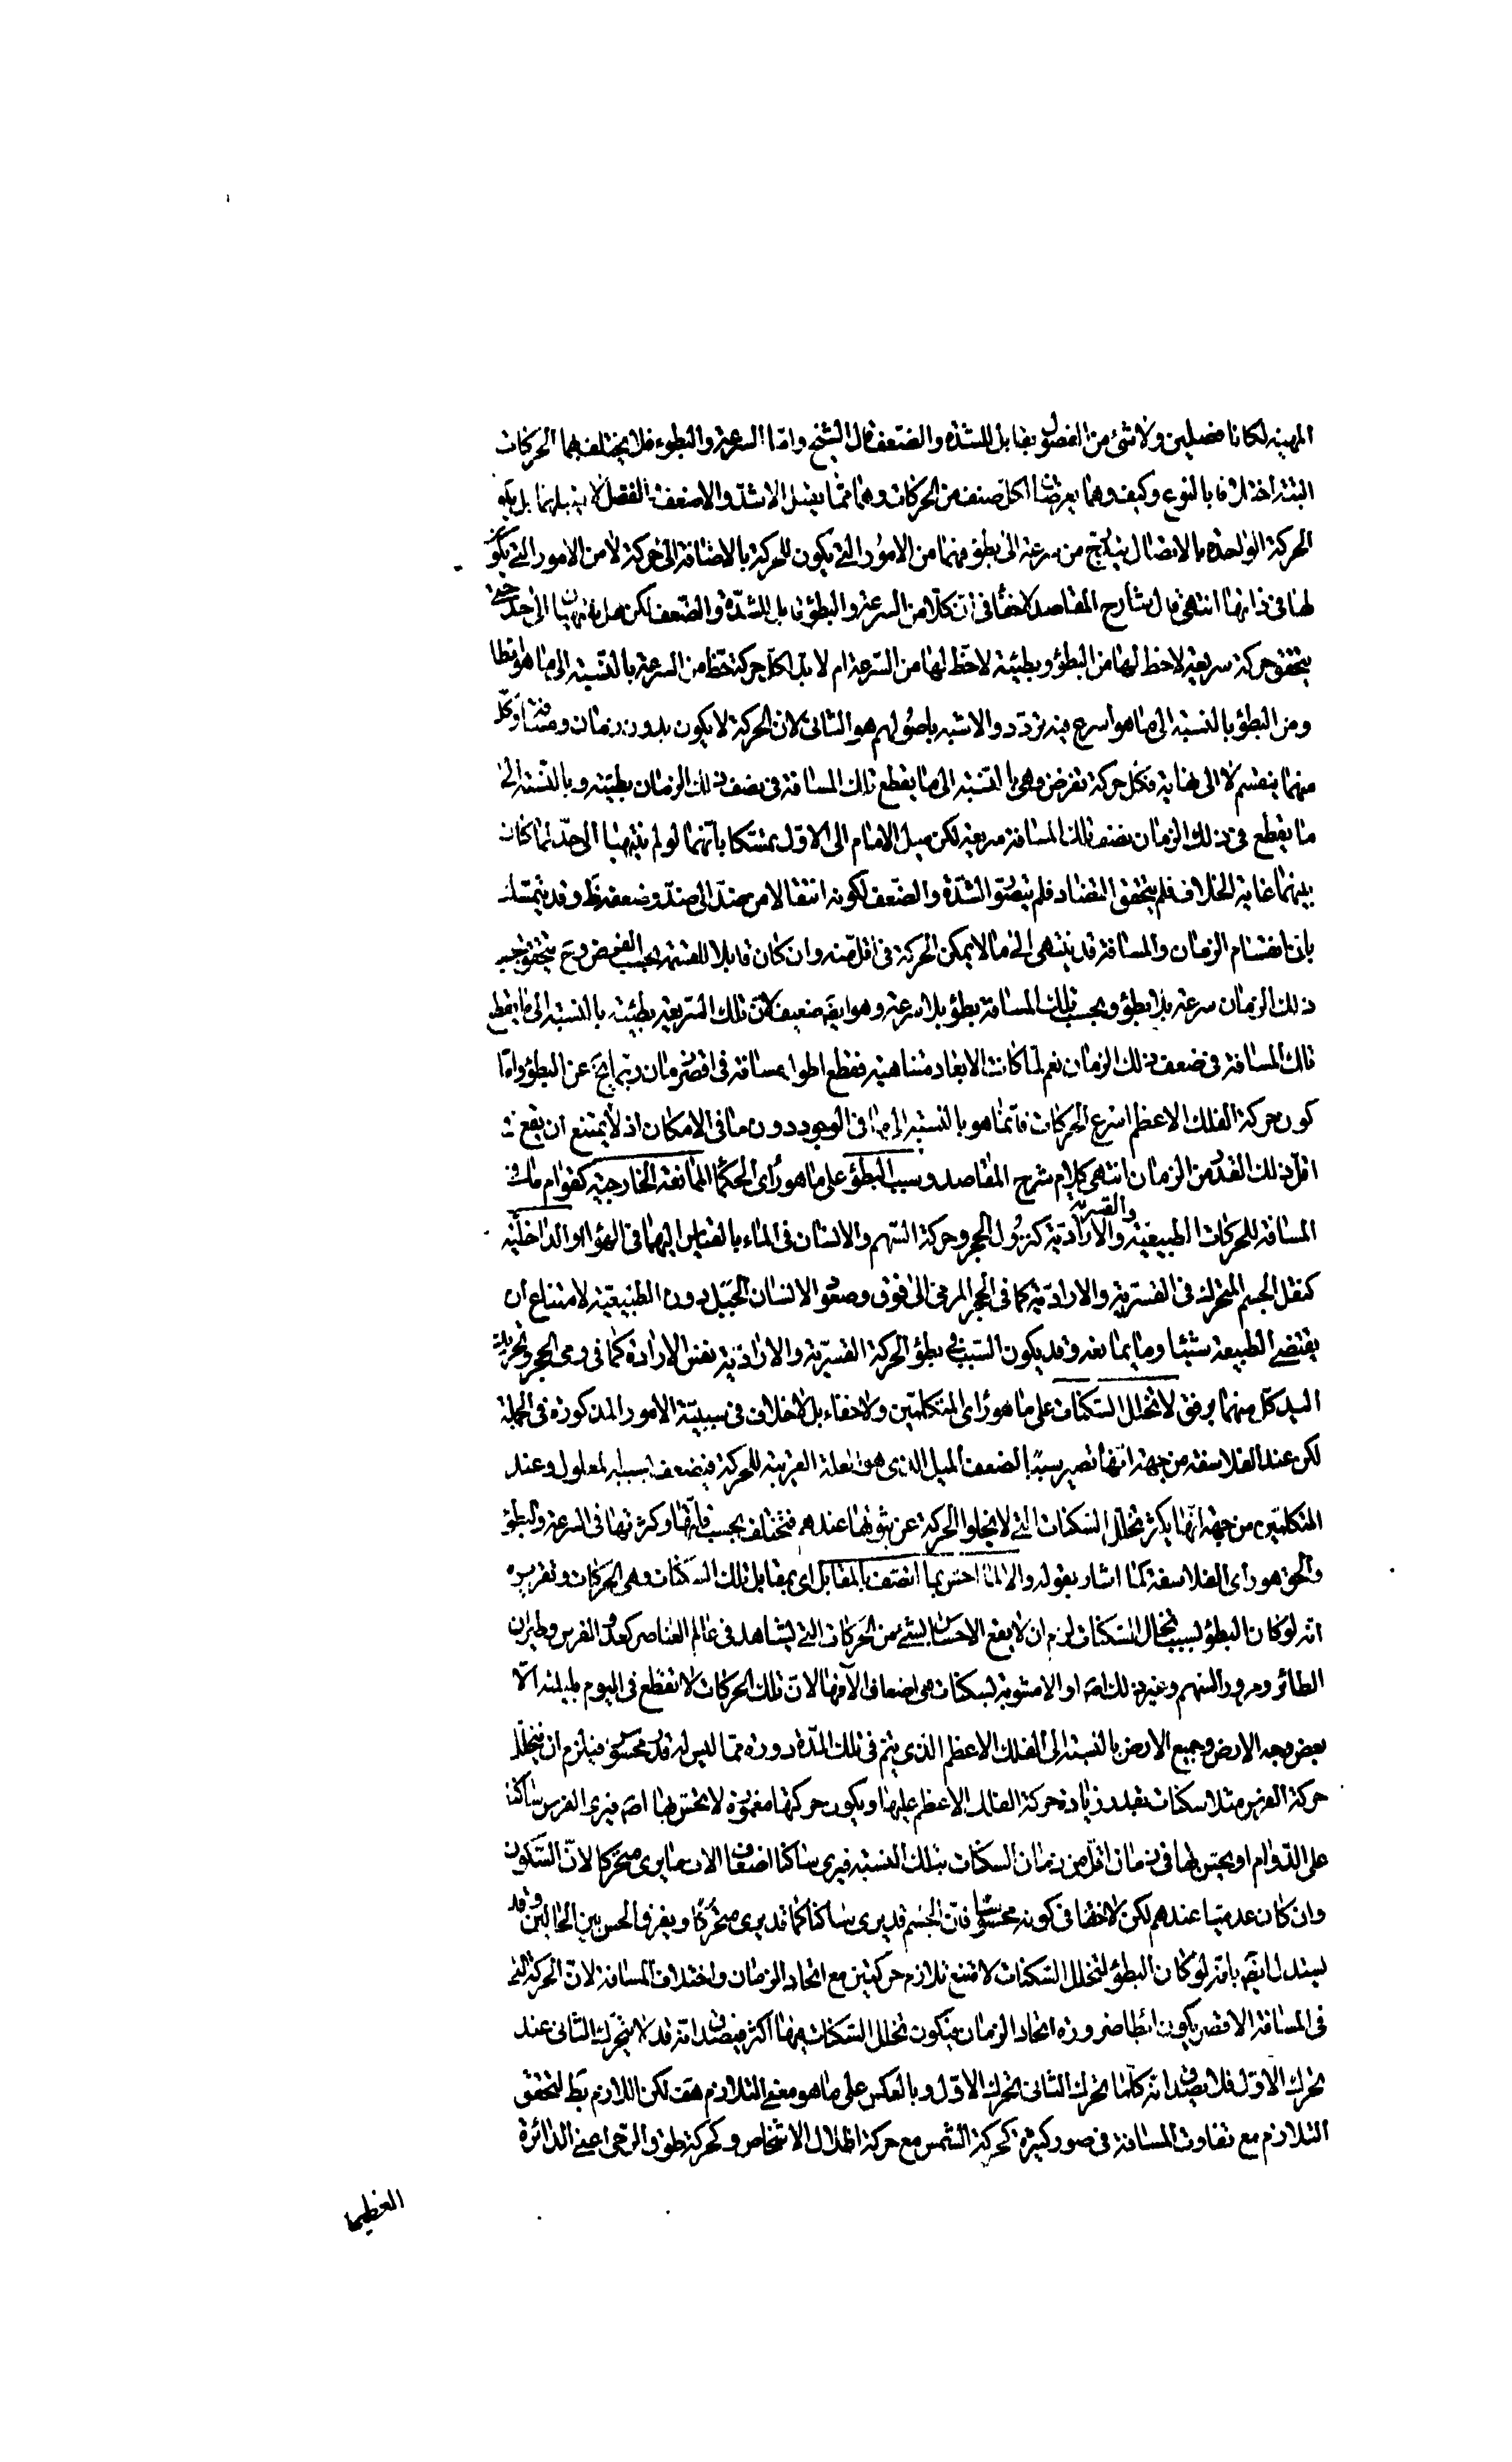 المهية لكانا فصلين ولا شئ من الفصول بقابل للشدة والضعف قال الشيخ وامّا السرعة والبطوء فلا يختلف بهما الحركات
البتة اختلافا بالنوع وكيف وهما يعرضان لكل صنف من الحركات وهما ممّا يقبل الاشدّ والاضعف والفصل لا يقبلهما بل يكو
الحركة الواحدة بالاتصال يتدرّج من سرعة الى بطؤ فهما من الامور التي يكون للحركة بالاضافة الى حركة لا من الامور التي يكون
لها في ذاتها انتهى قال شارح المقاصد لا خفأ في انّ كلّا من السرعة والبطؤ قابل للشدّة والضّعف لكن هل ينتهيان الى حدّ حتى
يتحقق حركة سريعة لاحظ لها من البطؤ وبطيئة لاحظّ لها من السّرعة ام لا بل لكلّ حركة حظّ من السرعة بالنسبة الى ما هو ابطا
ومن البطؤ بالنسبة الى ما هو اسرع فيه تردّد والاشبه باصولهم هو الثاني لان الحركة لا يكون بدون زمان ومسافة وكلّ
منهما ينقسم لا الى نهاية فكل حركة تفرض فهى بالنسبة الى ما يقطع تلك المسافة في نصف ذلك الزمان بطيئة وبالنسبة الى
ما يقطع في ذلك الزمان نصف تلك المسافة سريعة لكن ميل الامام الى الاوّل تمسّكا بانّهما لو لم ينتهيا الى حدّ لما كان
بينهما غاية الخلاف فلم يتحقق التضاد فلم يتصوّر الشدّة والضّعف لكونه انتقالا من ضدّ الى ضدّ وضعفه ظ وقد يتمسّك
بان انقسام الزمان والمسافة قد ينتهى الى ما لا يمكن الحركة في اقلّ منه وان كان قابلا للقسمة بحسب الفرض وح يتحقق بحسب
ذلك الزمان سرعة بلا بطؤ وبحسب تلك المسافة بطؤ بلا سرعة وهو ايضا ضعيف لانّ تلك السّريعة بطيئة بالنسبة الى ما يقطع
تلك المسافة في ضعف ذلك الزمان نعم لمّا كانت الابعاد متناهية فقطع اطول مسافة في اقصر زمان ربّما يخ عن البطؤ وامّا
كون حركة الفلك الاعظم اسرع الحركات فانّما هو بالنسبة الى ما في الوجود دون ما في الامكان اذ لا يمتنع ان يقع في
اقل ذلك القدر من الزمان انتهى كلام شرح المقاصد وسبب البطؤ على ما هو رأى الحكما الممانعة الخارجية كقوام ما في
المسافة للحركات الطبيعية والقسرية والاراديّة كنزول الحجر وحركة السّهم والانسان في الماء بالقياس اليهما في الهواء او الداخلية
كثقل الجسم المتحرك في القسرية والاراديّة كما في الحجر المرمى الى فوق وصعود الانسان الجبل دون الطبيعيّة لامتناع ان
يقتضي الطبيعة شيئا وما يمانعه وقد يكون السّبب في بطؤ الحركة القسريّة والاراديّة نفس الارادة كما في رمى الحجر وتحريك
اليد كلّ منهما برفق لا تخلل السّكنات على ما هو رأى المتكلمّين ولا خفاء بل لا خلاف في سببيّة الامور المذكورة في الجملة
لكن عند الفلاسفة من جهة انّها تصير سببا لضعف الميل الذي هو العلة القريبة للحركة فيضعف بسببه المعلول وعند
المتكلمّين من جهة انّها يكثر تخلل السّكنات التي لا يخلوا الحركة عن ثبوتها عندهم فتختلف بحسب قلّتها وكثرتها في السرعة والبطؤ
والحق هو رأى الفلاسفة كما اشار بقوله والا لما احسّ بما اتصف بالمقابل اى بمقابل تلك السّكنات وهى الحركات وتقريره
انه لو كان البطؤ لسبب تخلل السّكنات لزم ان لا يقع الاحساس بشئ من الحركات التي يشاهد في عالم العناصر كعدو الفرس وطيران
الطائر ومرور السّهم وغير ذلك اصلا او الا مشوبة بسكنات هى اضعاف الآفها لانّ تلك الحركات لا تقطع في اليوم بليلته الّا
بعض وجه الارض وجميع الارض بالنسبة الى الفلك الاعظم الذى يتم في تلك المدّة دورة ممّا ليس له قدر محسوس فيلزم ان يتخلّل
حركة الفرس مثلا سكنات بقدر زيادة حركة الفلك الاعظم عليها ويكون حركتها مغمورة لا يحسّ بها اصلا فيرى الفرس ساكنا
على الدّوام او يحسّ بها في زمان اقلّ من زمان السكنات بتلك النسبة فيرى ساكنا اضعاف الاف ما يرى متحرّكا لانّ السّكون
وان كان عدميّا عندهم لكن لا خفا في كونه محسوسا فانّ الجسم قد يرى ساكنا كما قد يرى متحرّكا ويفرق الحس بين الحالين وقد
يستدل ايضا بانه لو كان البطؤ لتخلل السّكنات لامتنع تلازم حركتين مع اتحاد الزمان واختلاف المسافة لانّ الحركة التي
في المسافة الاقصر يكون ابطا ضرورة اتحاد الزمان فيكون تخلل السّكنات فيها اكثر فيصدق انه قد لا يتحرّك الثاني عند
تحرك الاوّل فلا يصدق انه كلّما تحرك الثاني تحرك الاوّل وبالعكس على ما هو معنى التلازم هف لكن اللازم بط لتحقق
التلازم مع تفاوت المسافة في صور كثيرة كحركة الشمس مع حركة اظلال الاشخاص وكحركة طوق الرحى اعنى الدائرة
العظيما